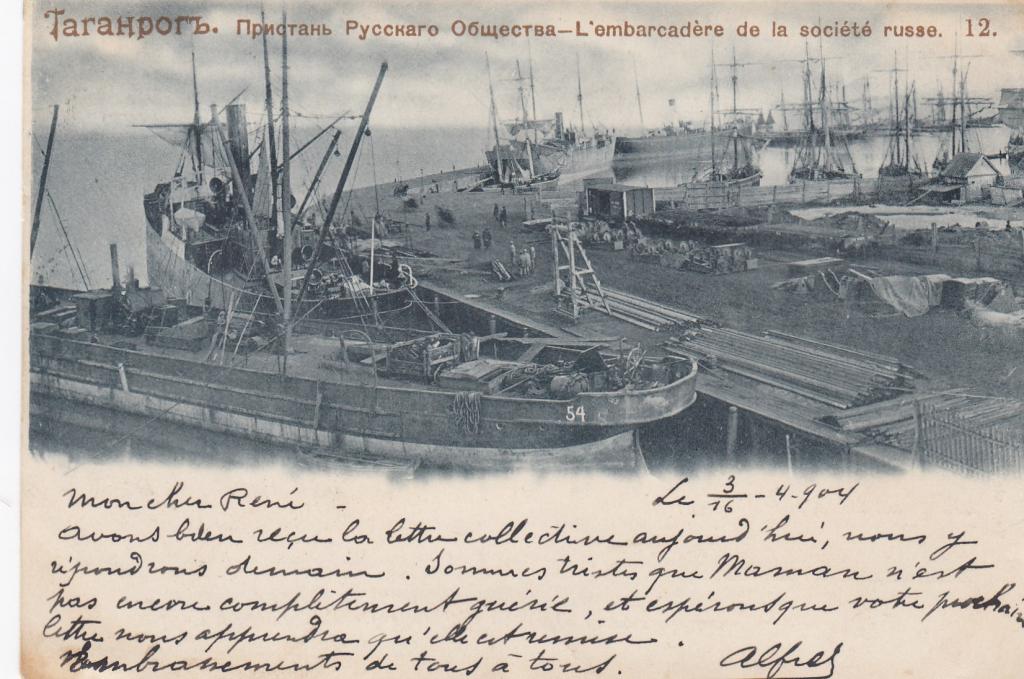 Таганрогъ. Пристань Русскаго Общества—L'embarcadère de la société russe. 12.
54
Mon cher René - Le 3/16 - 4 - 904
avons bien reçu la lettre collective aujourd'hui, nous y
répondrons demain. Sommes tristes que Maman n'est
pas encore complètement guérie, et espérons que votre prochaine
lettre nous apprendra qu'elle est remise.
Embrassements de tous à tous. Alfred